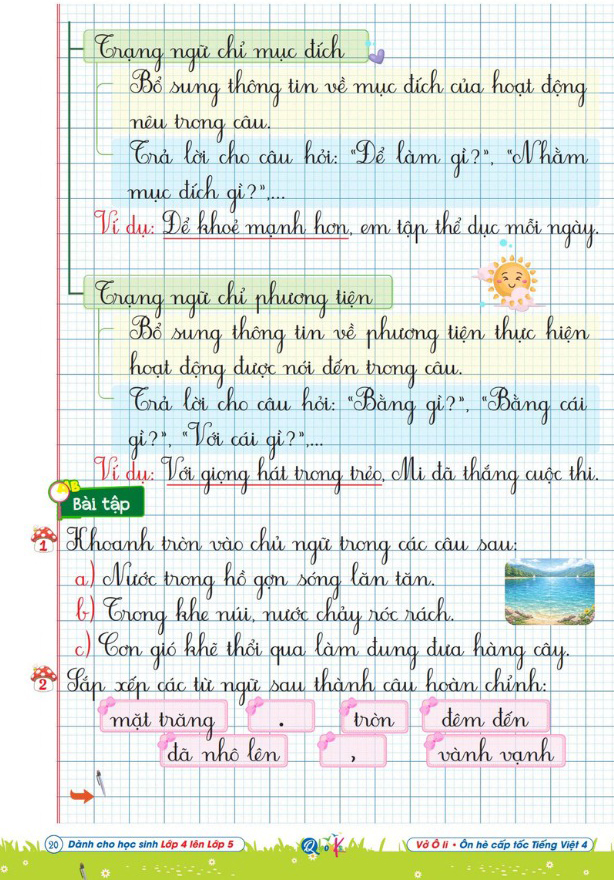 Trạng ngữ chỉ mục đích
Bổ sung thông tin về mục đích của hoạt động
nêu trong câu.
Trả lời cho câu hỏi: "Để làm gì?", "Nhằm
mục đích gì?",...
Ví dụ: Để khoẻ mạnh hơn, em tập thể dục mỗi ngày.
Trạng ngữ chỉ phương tiện
Bổ sung thông tin về phương tiện thực hiện
hoạt động được nói đến trong câu.
Trả lời cho câu hỏi: "Bằng gì?", "Bằng cái
gì?", "Với cái gì?",...
Ví dụ: Với giọng hát trong trẻo, Mi đã thắng cuộc thi.
Bài tập
1 Khoanh tròn vào chủ ngữ trong các câu sau:
a) Nước trong hồ gợn sóng lăn tăn.
b) Trong khe núi, nước chảy róc rách.
c) Cơn gió khẽ thổi qua làm đung đưa hàng cây.
2 Sắp xếp các từ ngữ sau thành câu hoàn chỉnh:
mặt trăng . tròn đêm đến
đã nhô lên , vành vạnh
20 Dành cho học sinh Lớp 4 lên Lớp 5 Vở Ô li • Ôn hè cấp tốc Tiếng Việt 4